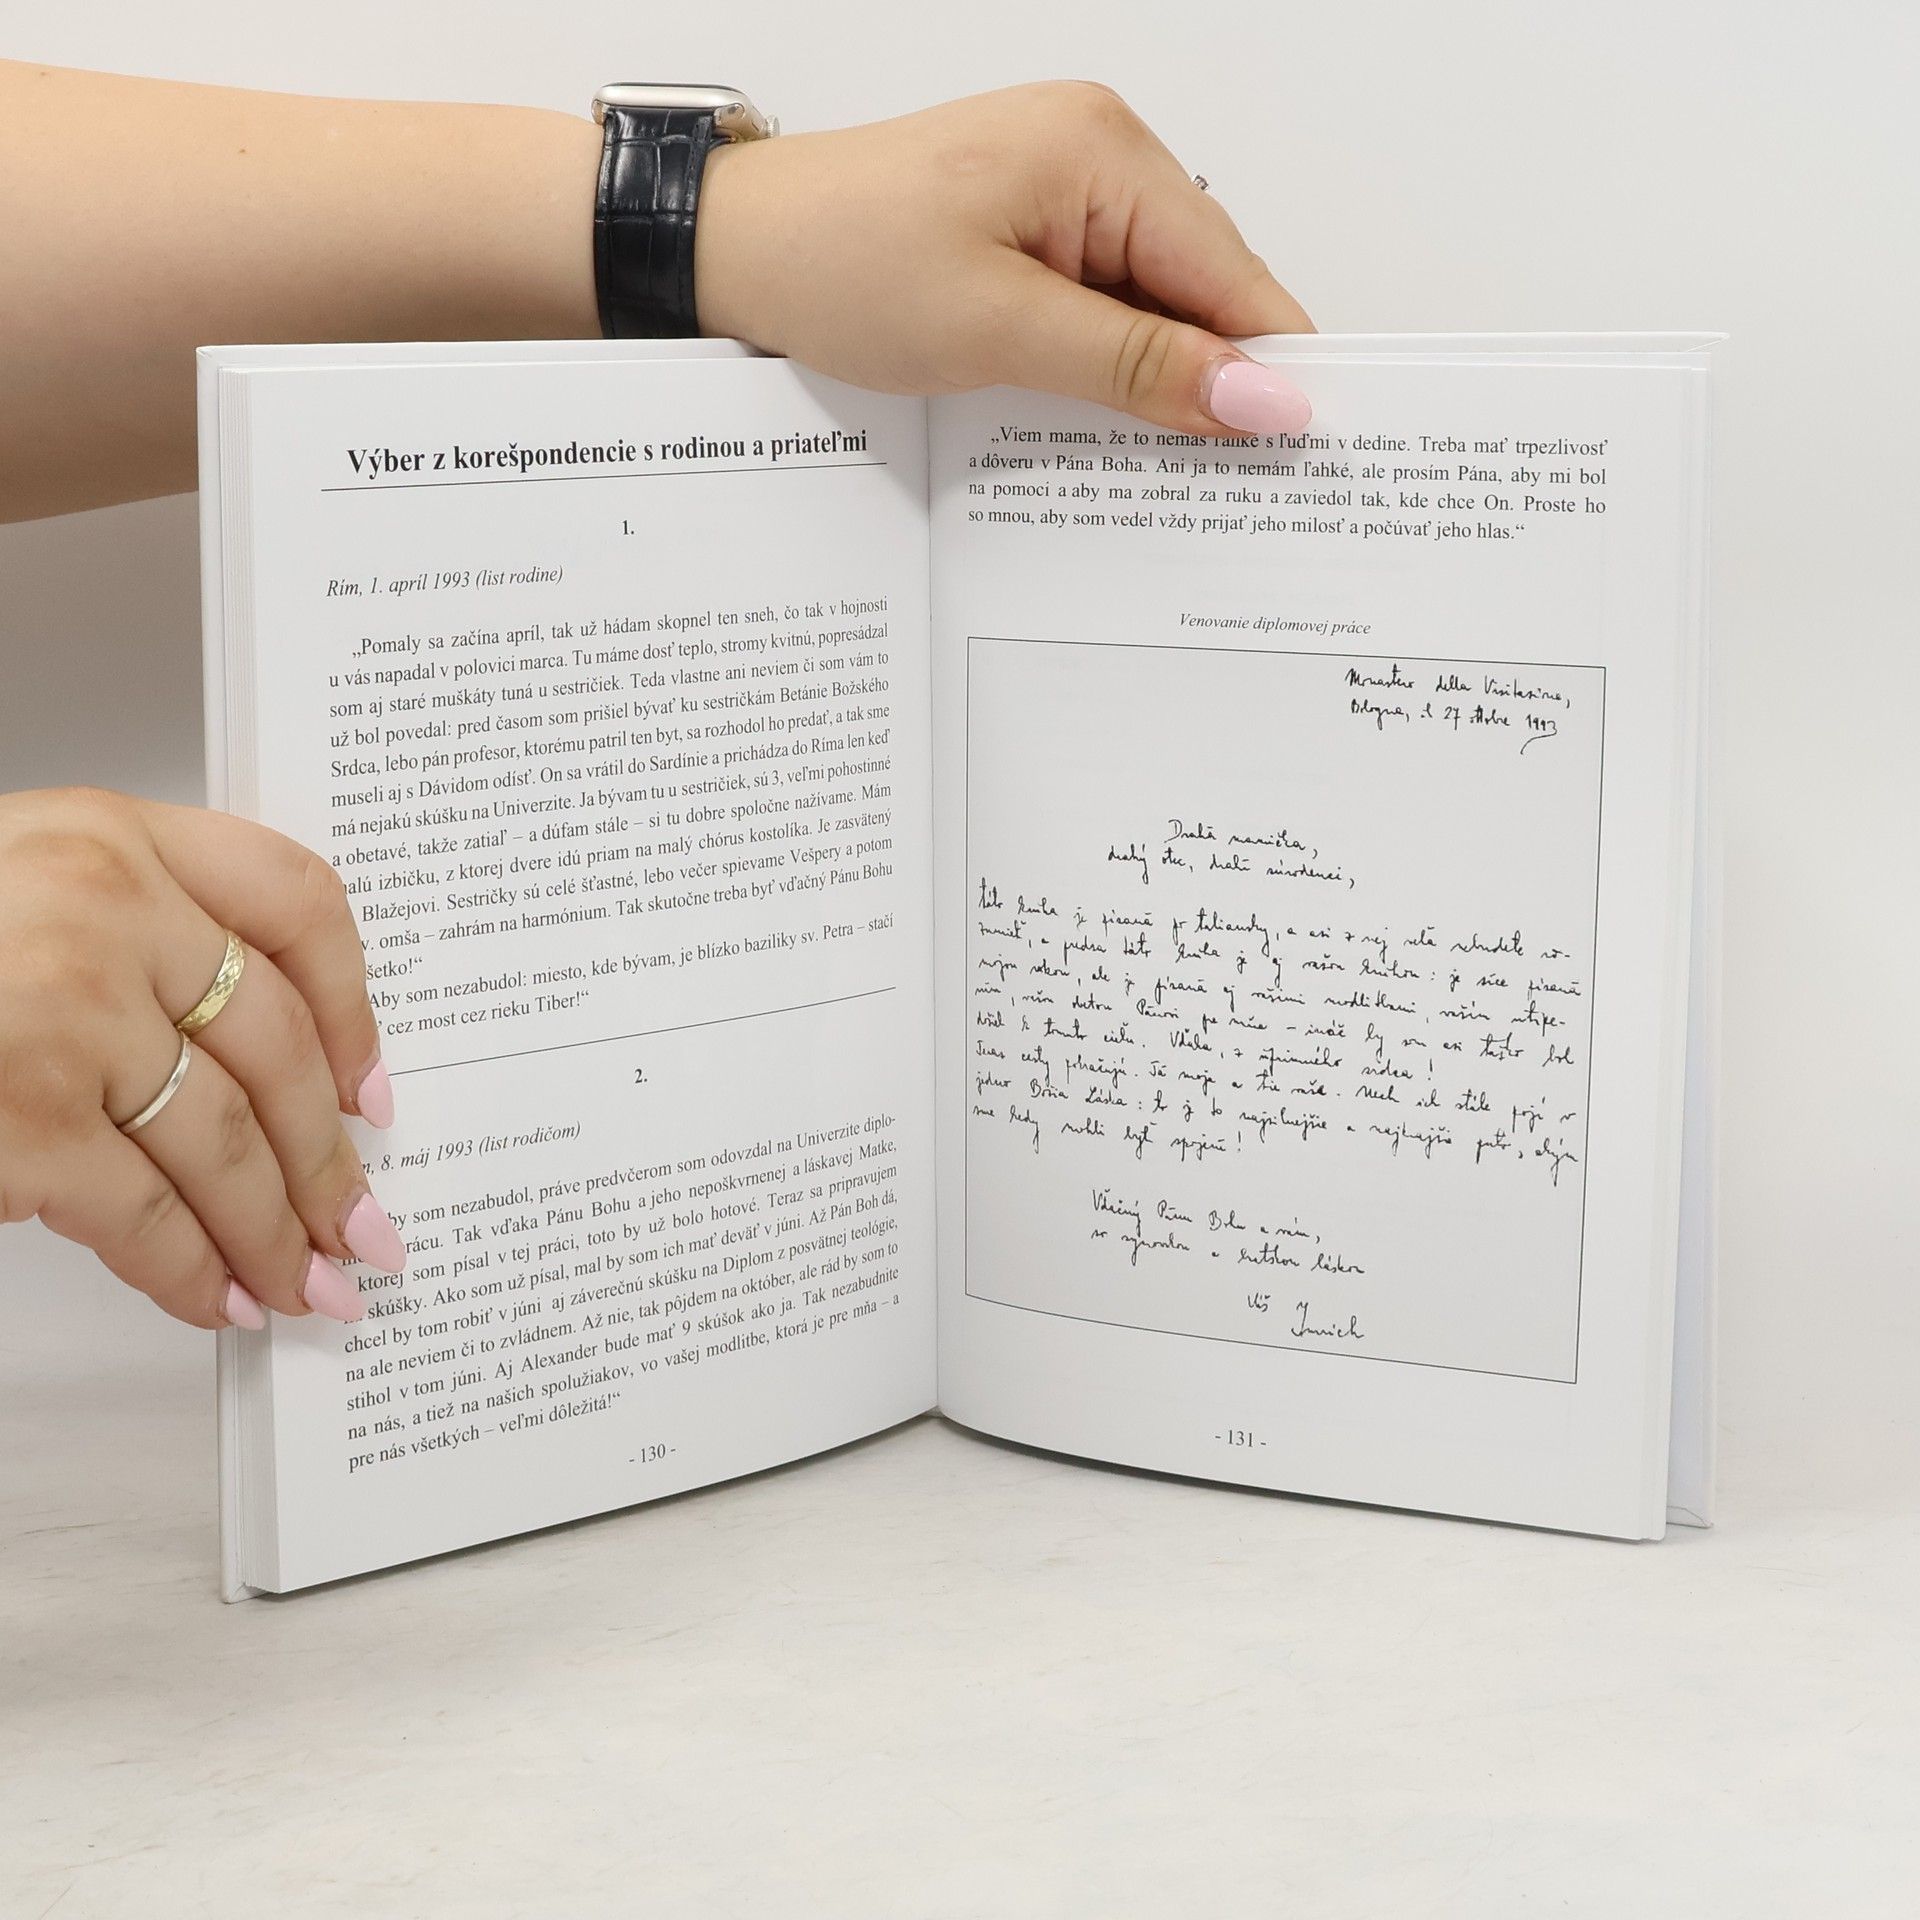 Výber z korešpondencie s rodinou a priateľmi
1.
Rím, 1. apríl 1993 (list rodine)
„Pomaly sa začína apríl, tak už hádam skopnel ten sneh, čo tak v hojnosti
u vás napadal v polovici marca. Tu máme dosť teplo, stromy kvitnú, popresádzal
som aj staré muškáty tuná u sestričiek. Teda vlastne ani neviem či som vám to
už bol povedal: pred časom som prišiel bývať ku sestričkám Betánie Božského
Srdca, lebo pán profesor, ktorému patril ten byt, sa rozhodol ho predať, a tak sme
museli aj s Dávidom odísť. On sa vrátil do Sardínie a prichádza do Ríma len keď
má nejakú skúšku na Univerzite. Ja bývam tu u sestričiek, sú 3, veľmi pohostinné
a obetavé, takže zatiaľ – a dúfam stále – si tu dobre spoločne nažívame. Mám
alú izbičku, z ktorej dvere idú priam na malý chórus kostolíka. Je zasvätený
Blažejovi. Sestričky sú celé šťastné, lebo večer spievame Vešpery a potom
v. omša – zahrám na harmónium. Tak skutočne treba byť vďačný Pánu Bohu
šetko!“
Aby som nezabudol: miesto, kde bývam, je blízko baziliky sv. Petra – stačí
cez most cez rieku Tiber!“
2.
8. máj 1993 (list rodičom)
by som nezabudol, práve predvčerom som odovzdal na Univerzite diplo-
rácu. Tak vďaka Pánu Bohu a jeho nepoškvrnenej a láskavej Matke,
ktorej som písal v tej práci, toto by už bolo hotové. Teraz sa pripravujem
skúšky. Ako som už písal, mal by som ich mať deväť v júni. Až Pán Boh dá,
chcel by tom robiť v júni aj záverečnú skúšku na Diplom z posvätnej teológie,
na ale neviem či to zvládnem. Až nie, tak pôjdem na október, ale rád by som to
stihol v tom júni. Aj Alexander bude mať 9 skúšok ako ja. Tak nezabudnite
na nás, a tiež na našich spolužiakov, vo vašej modlitbe, ktorá je pre mňa – a
pre nás všetkých – veľmi dôležitá!“
- 130 -
„Viem mama, že to nemáš ľahké s ľuďmi v dedine. Treba mať trpezlivosť
a dôveru v Pána Boha. Ani ja to nemám ľahké, ale prosím Pána, aby mi bol
na pomoci a aby ma zobral za ruku a zaviedol tak, kde chce On. Proste ho
so mnou, aby som vedel vždy prijať jeho milosť a počúvať jeho hlas.“
Venovanie diplomovej práce
Monastero della Visitazione,
Bologna, il 27 ottobre 1993
Drahá mamička,
drahý otec, drahí súrodenci,
táto kniha je písaná po taliansky, a asi z nej veľa nebudete ro-
zumieť, a predsa táto kniha je aj vašou knihou: je síce písaná
mojou rukou, ale je písaná aj vašimi modlitbami, vaším utrpe-
ním, vašou obetou Pánovi pre mňa – ináč by som asi ťažko bol
došiel k tomuto cieľu. Vďaka, z úprimného srdca!
Naše cesty pokračujú. Tá moja a tie vaše. Nech ich stále pojí v
jedno Božia Láska: to je to najsilnejšie a najkrajšie puto, akým
sme kedy mohli byť spojení!
Vďačný Pánu Bohu a vám,
so synovskou a bratskou láskou
Váš
Imrich
- 131 -